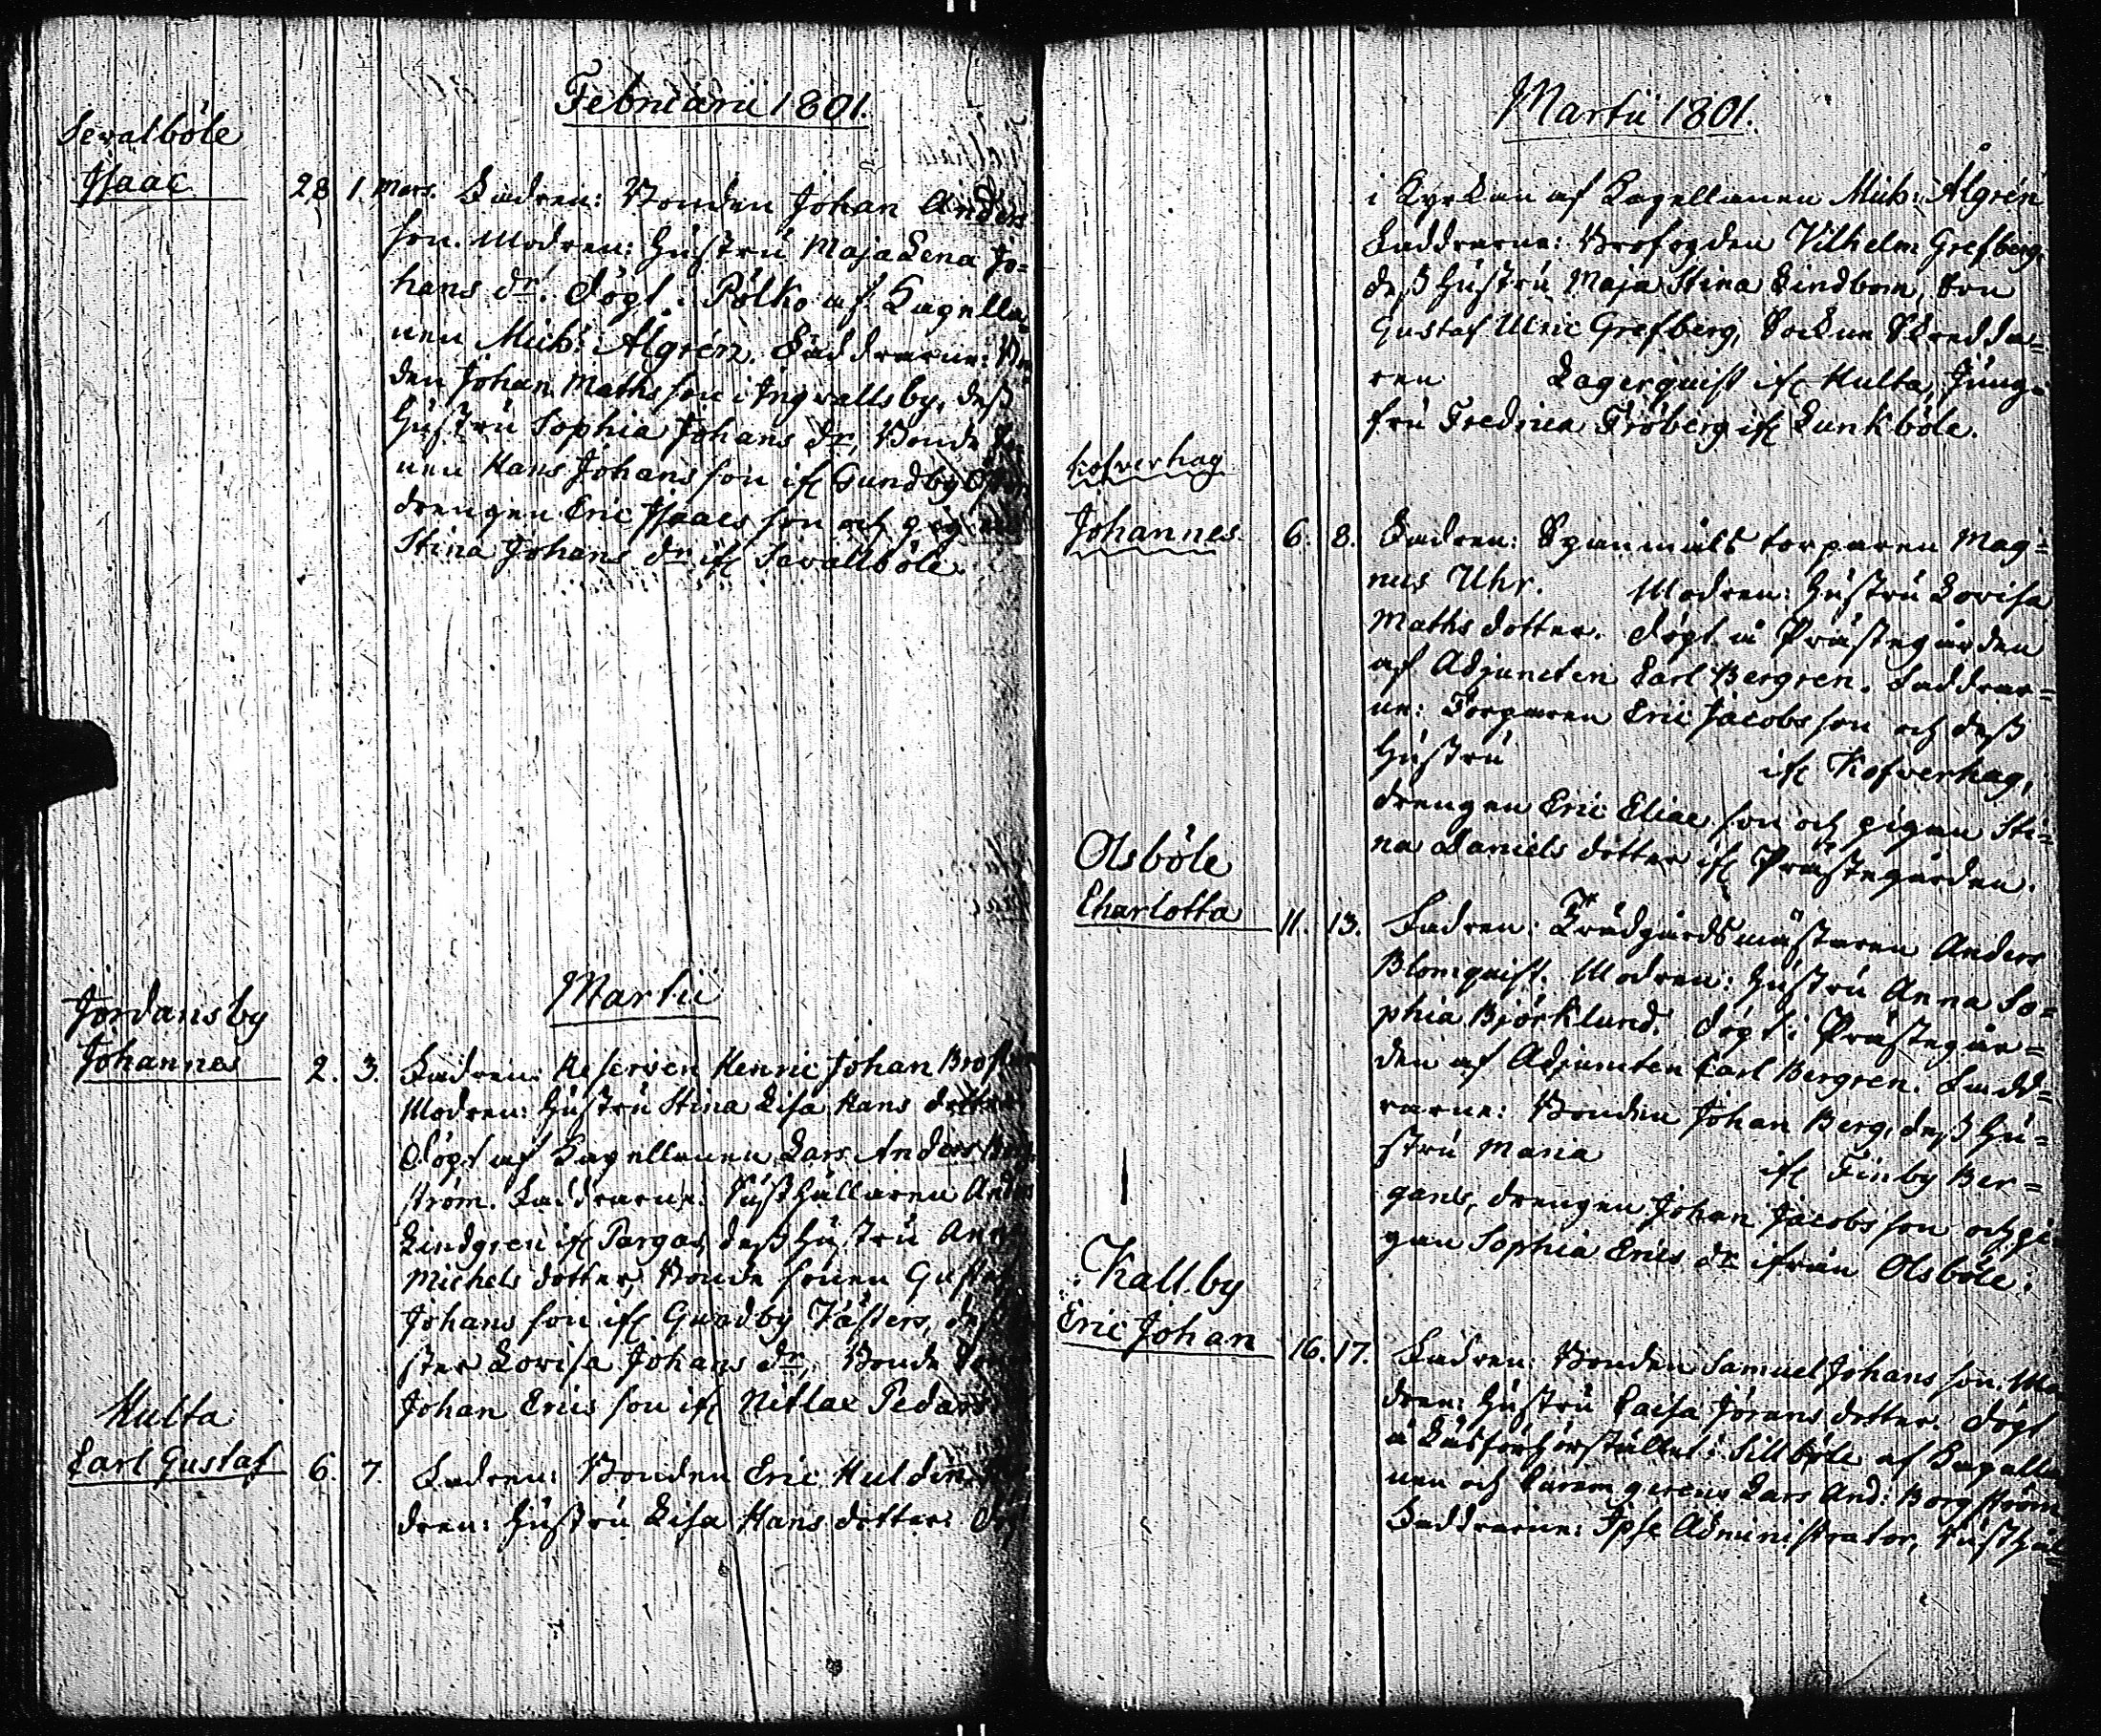 Februarii 1801.
Sevalböle
Isaac 28 1. Mars. Fadren: Bonden Johan Anders
son. Modren: Hustru Maja Lena Jo=
hans dr. Döpt i Pölko af Capella=
nen Mich: Ålgrén. Faddrarne: Bon
den Johan Mathsson i Ingvallsby, dess
Hustru Sophia Johans dr, Bonde So
nen Hans Johansson ifr Gundby
drengen Eric Isaacs son och pigan
Stina Johans dr ifr Sevallböle.
Martii
Jordansby
Johannes 2. 3. Fadren: Reserven Henric Johan
Modren: Hustru Stina Lisa Hans dotter
Döpt af Capellanen Lars Anders Borg
ström. Faddrarne: Rusthållaren Anders
Lindgren ifr Pargas, dess Hustru Anna
Michels dotter, Bonde sonen Gustaf
Johans son ifr Gundby Västers, dess
ster Lovisa Johans dr, Bonde Son
Johan Erics son ifr Nitlax Pedars
Hulta
Carl Gustaf 6. 7. Fadren: Bonden Eric Huldin
dren: Hustru Lisa Hans dotter: Döpt
Martii 1801.
i Kyrkan af Capellanen Mich: Ålgrén
Faddrarne: Brofogden Vilhelm Grefberg,
dess Hustru Maja Stina Lindbom, Son
Gustaf Ulric Grefberg, Sockne Skredda=
ren Lagerquist ifr Hulta, Jung=
fru Fredrica Fröberg ifr Lunkböle.
Kofverhag
Johannes 6. 8. Fadren: Spanmåls torparen Mag=
nus Uhr. Modren: Hustru Lovisa
Maths dotter. Döpt å Prästegården
af Adjuncten Carl Bergren. Faddrar=
ne: Torparen Eric Jacobs son och dess
Hustru ifr Kofverhag,
drengen Eric Eliae son och pigan Sti=
na Daniels dotter ifr Prästegården.
Olsböle
Charlotta 11. 13. Fadren: Trädgårdsmästaren Anders
Blomquist. Modren: Hustru Anna So=
phia Björklund. Döpt i Prästegår=
den af Adjuncten Carl Bergren. Fadd=
rarne: Bonden Johan Berg, dess Hu=
stru Maria ifr Finby Ber=
gans, drengen Johan Jacobs son och pi
gan Sophia Erics dr ifrån Olsböle.
Kallby
Eric Johan 16. 17. Fadren: Bonden Samuel Johans son. Mo
dren: Hustru Caisa Jörans dotter. Döpt
å Läsförhörstället i Sillböle af Capella
nen och Curam gerens Lars And: Borgström
Faddrarne: Ipse Administrator, Rusthål